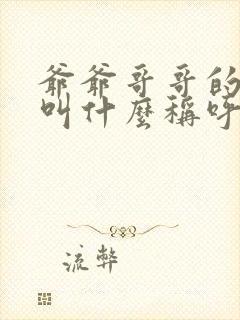 爺爺哥哥的
叫什麼稱呼
流弊